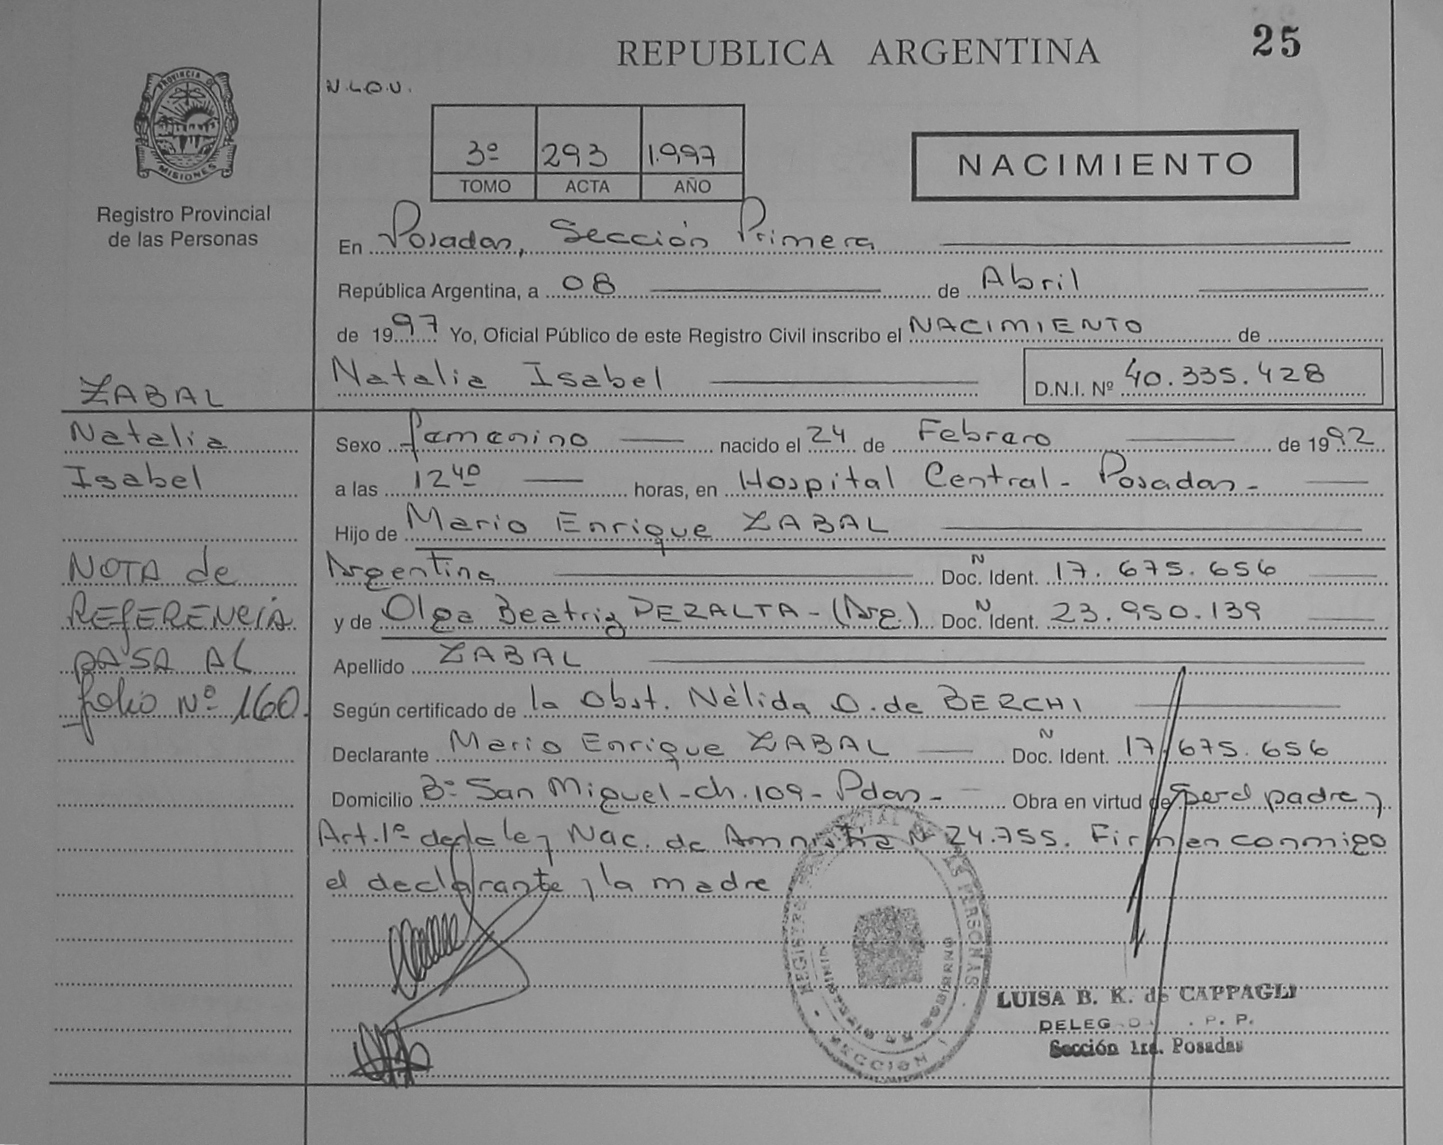 REPUBLICA ARGENTINA
25
PROVINCIA DE
MISIONES
Registro Provincial
de las Personas
N.L.O.V.
3º 293 1.997
TOMO ACTA AÑO
NACIMIENTO
En Posadas, Sección Primera
República Argentina, a 08 de Abril
de 1997 Yo, Oficial Público de este Registro Civil inscribo el NACIMIENTO de
Natalia Isabel D.N.I. Nº 40.335.428
ZABAL
Natalia
Isabel
NOTA de
REFERENCIA
PASA AL
folio Nº 160.
Sexo famanino nacido el 24 de Febraro de 1992
a las 12 40 horas, en Hospital Central - Posadas -
Hijo de Mario Enrique ZABAL
Argentina Doc. N Ident. 17.675.656
y de Olga Beatriz PERALTA - (Arg.) Doc. N Ident. 23.950.139
Apellido ZABAL
Según certificado de la Obst. Nélida O. de BERCHI
Declarante Mario Enrique ZABAL Doc. N Ident. 17.675.656
Domicilio Bº San Miguel - Ch. 109 - Pdas - Obra en virtud de ser el padre y
Art. 1º de la ley Nac. de Amnistia Nº 24.755. Firman conmigo
el declarante y la madre
REGISTRO PERSONAS
MINISTERIO DE GOBIERNO
SECCION 1
LUISA B. K. de CAPPAGLI
DELEG P. P.
Sección 1ra. Posadas